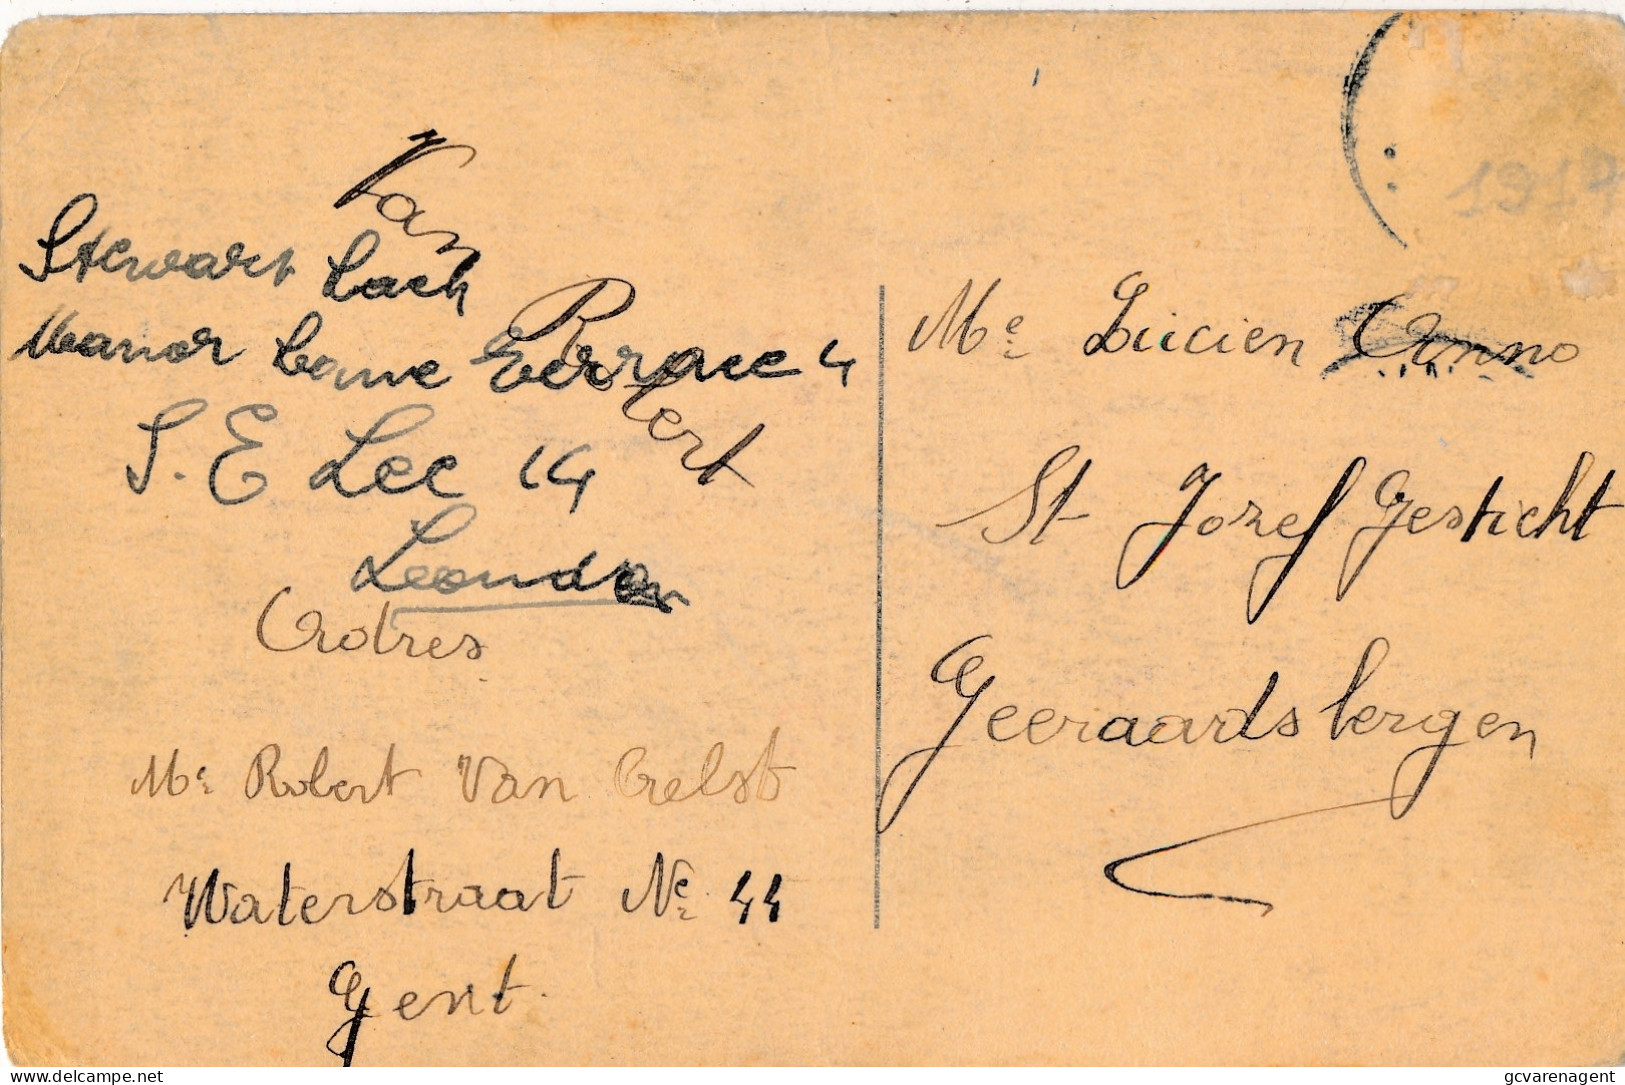 Van
Stewart Lack
Manor Lane Terrace 4
Robert
S. E Lee 14
London
Adres
Mr Robert Van Aelst
Waterstraat Nr 44
Gent.
Mr Lucien
St Jozef Gesticht
Geeraardsbergen
delcampe.net
gcvarenagent